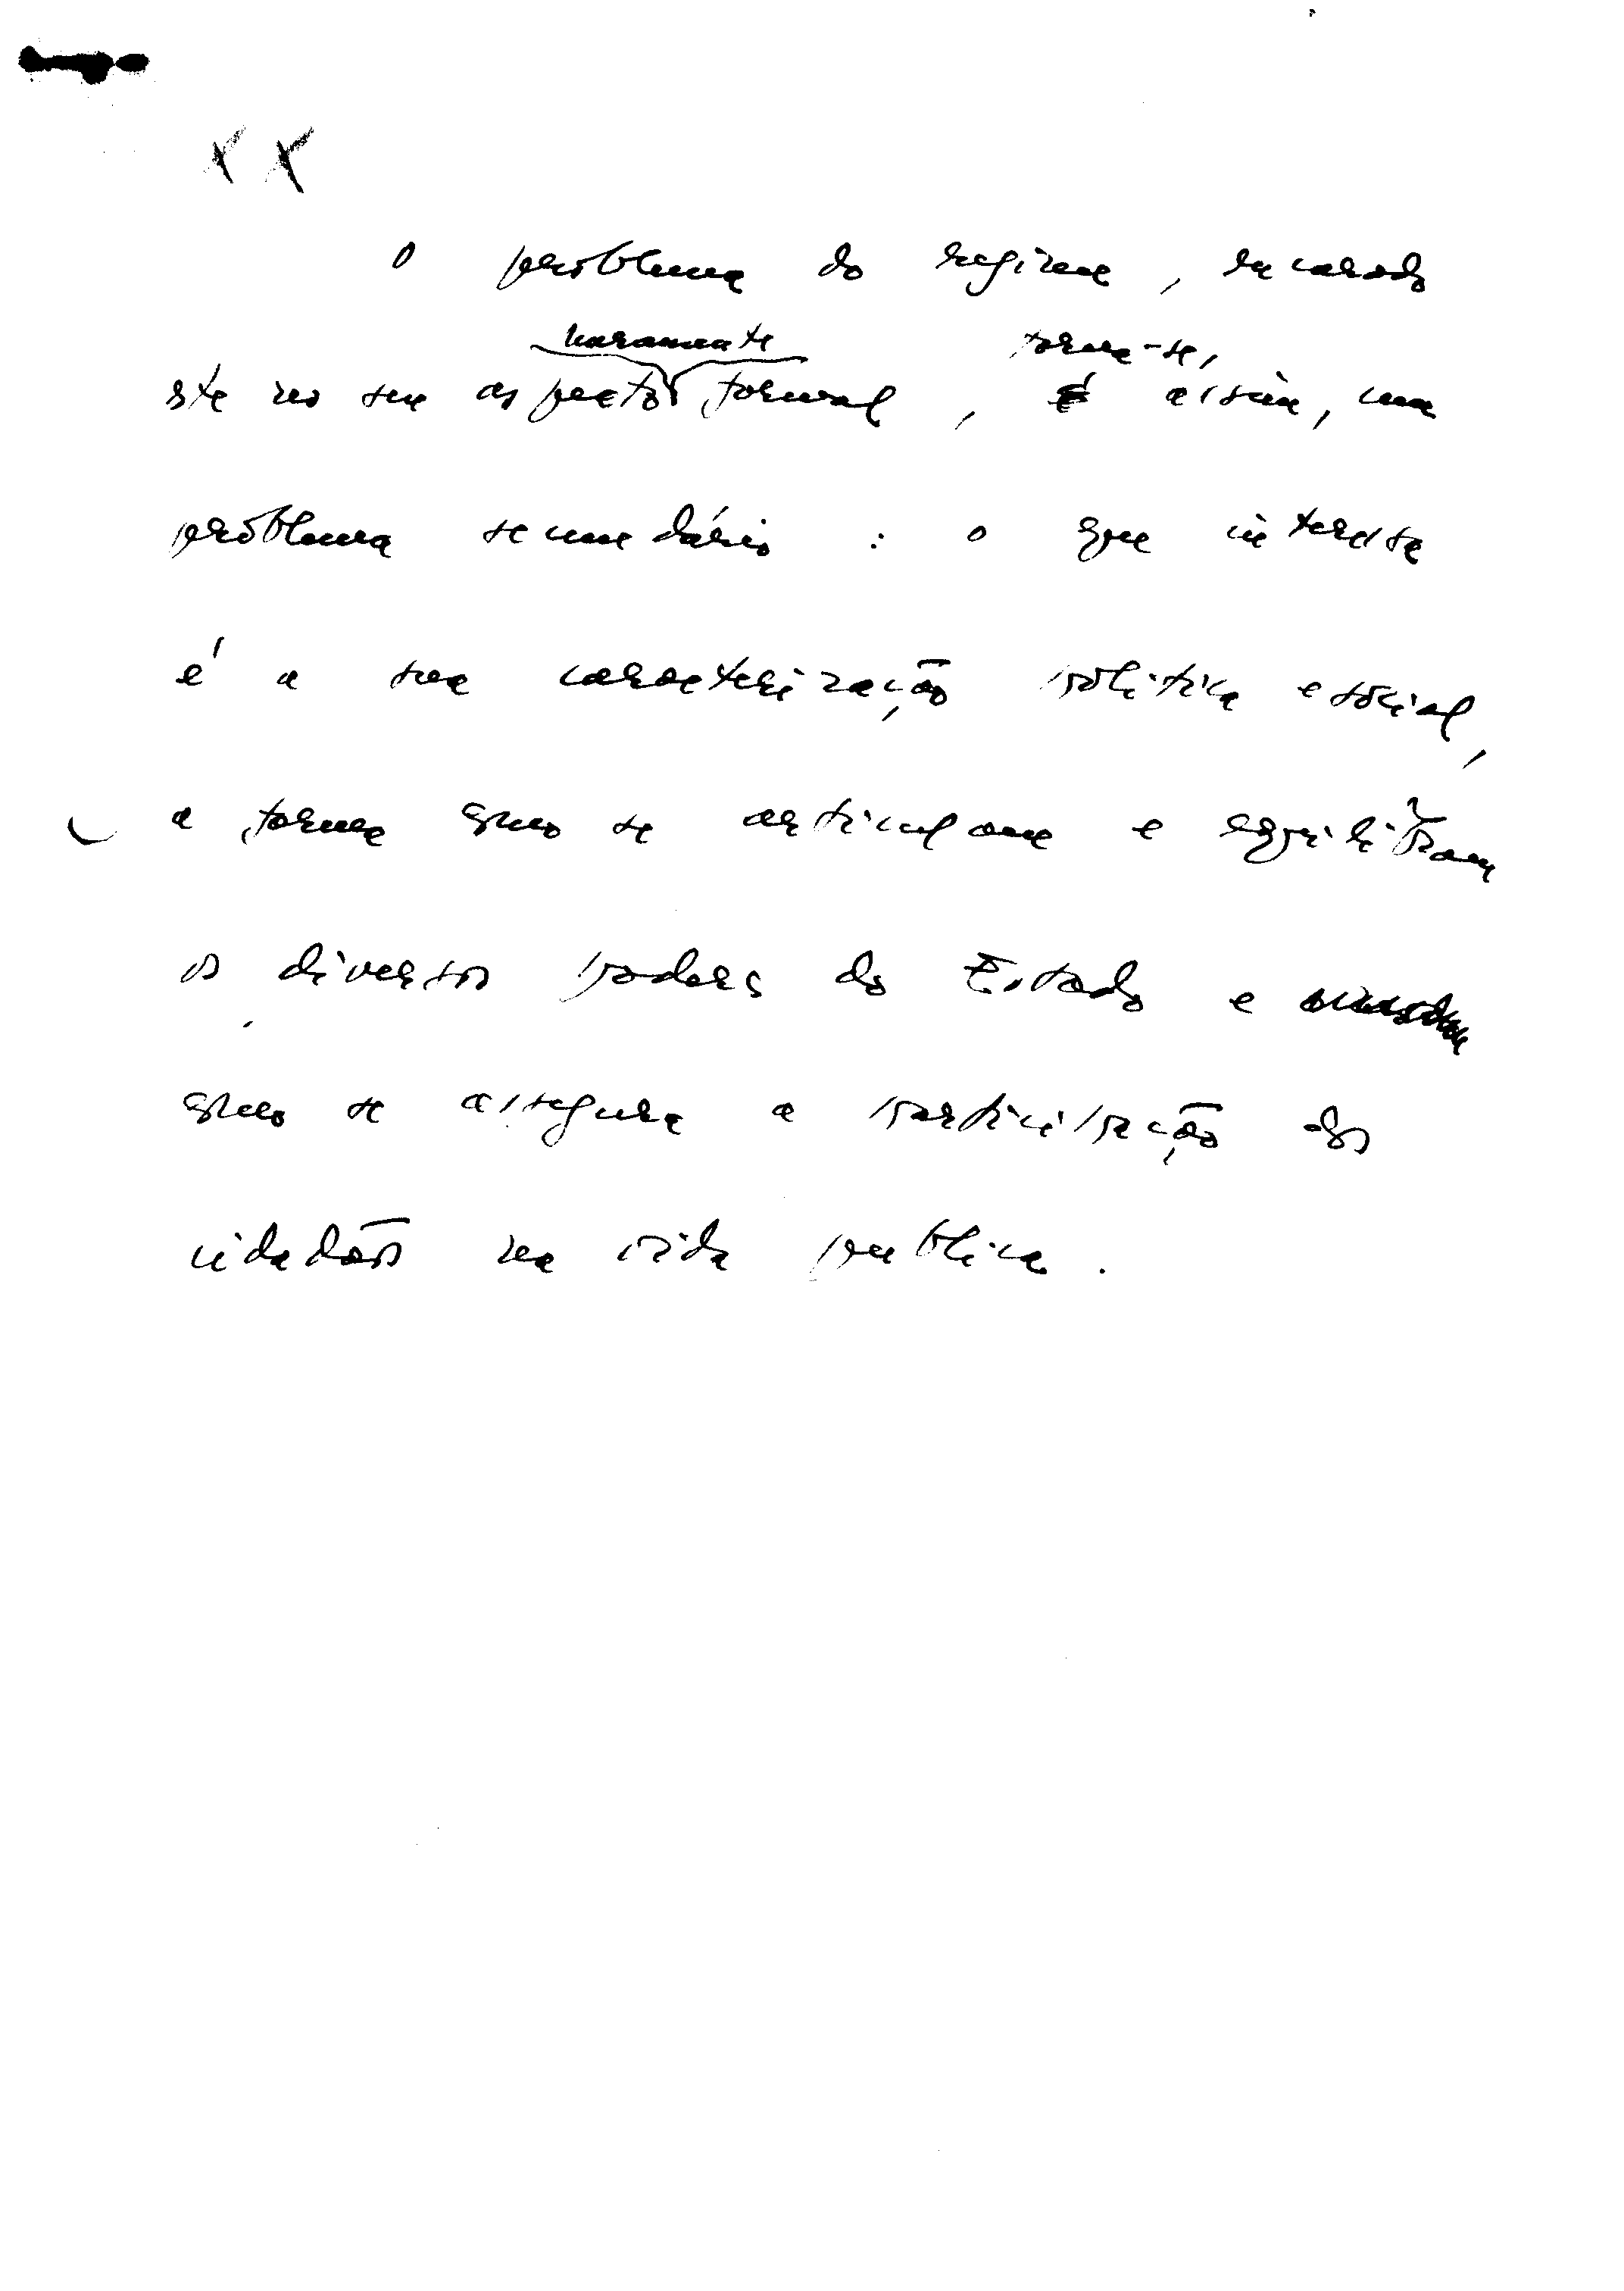 X X
O problema do regime, encarado
meramente torna-se,
este no seu aspecto formal, assim, um
problema secundário : o que interessa
é a sua caracterização política e social,
a forma como se articulam e equilibram
os diversos poderes do Estado e
como se assegura a participação dos
cidadãos na vida publica.